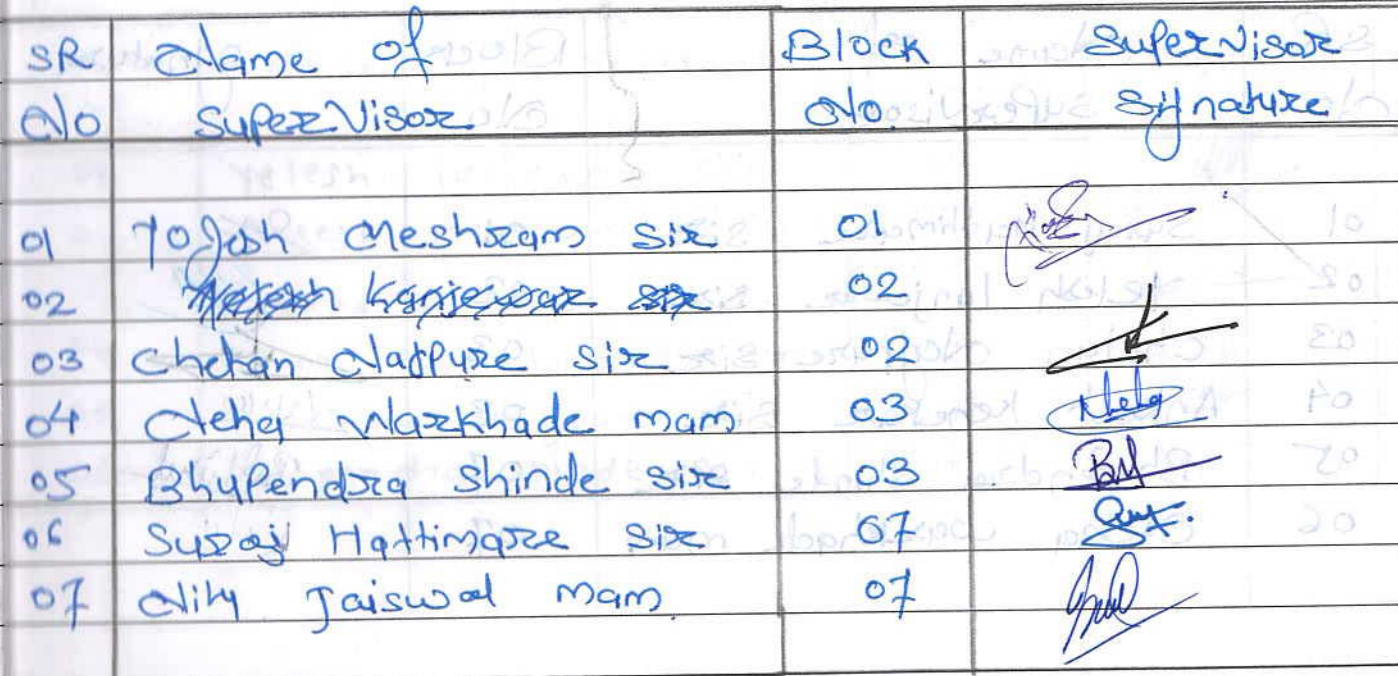 SR Name of Block Supervisor
No Supervisor No. Signature
01 Yogesh Meshram Sir 01
02 Kanjewar Sir 02
03 Chetan Natpure Sir 02
04 Neha Warkhade mam 03 Neha
05 Bhupendra Shinde Sir 03
06 Suraj Hattimare Sir 07
07 Jaiswal mam 07